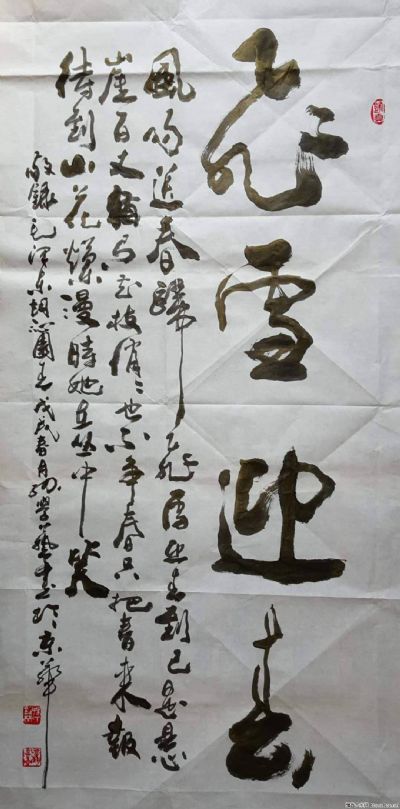 飛雪迎春
風雨送春歸飛雪迎春到已是懸
崖百丈冰猶有花枝俏俏也不爭春只把春來報
待到山花爛漫時她在丛中笑
敬錄毛泽东詞沁園春戊戌春月學藝書於京華